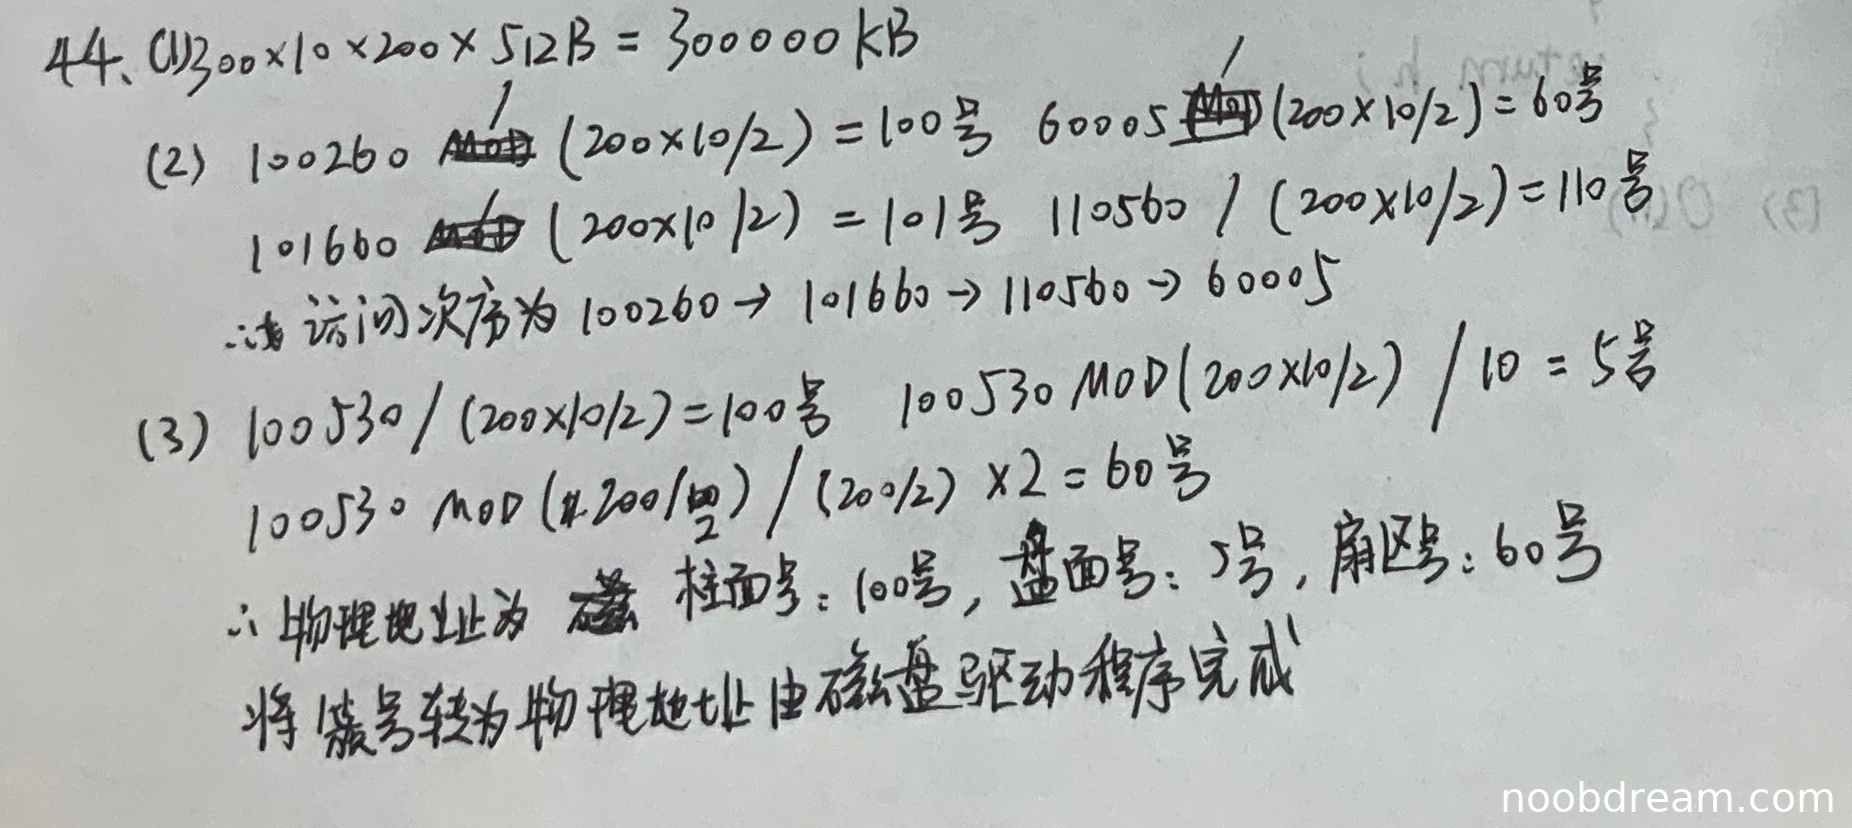 44、(1)300×10×200×512B=300000KB
(2) 100260 / (200×10/2)=100号 60005 / (200×10/2)=60号
101660 / (200×10/2)=101号 110560 / (200×10/2)=110号
∴ 访问次序为 100260→101660→110560→60005
(3) 100530/(200×10/2)=100号 100530 MOD(200×10/2) / 10 = 5号
100530 MOD (200/2) / (200/2) ×2=60号
∴物理地址为 柱面号:100号, 盘面号:5号, 扇区号:60号
将簇号转为物理地址由磁盘驱动程序完成
noobdream.com